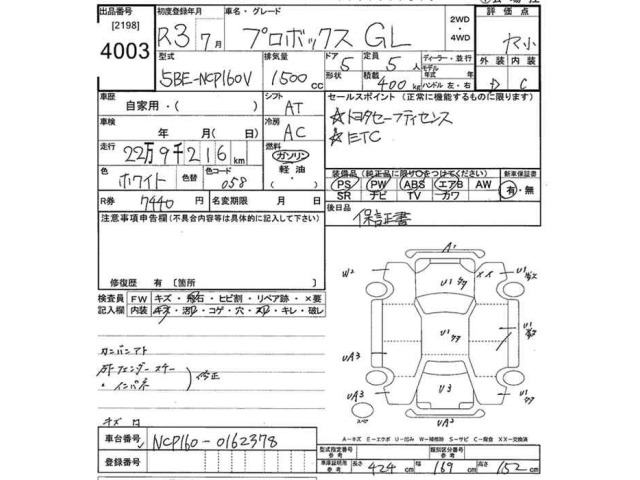 出品番号 初度登録年月 車名・グレード 2WD ・ 4WD 評価点
[2198]
4003 R3 7月 プロボックス GL ヤ小
型式 排気量 ドア 定員 ディーラー・並行 外装 内装
5BE-NCP160V 1500cc 5 5人 モデル年式 年
形状 積載 400kg ハンドル 左・右 D C
車歴 自家用・( ) シフト AT セールスポイント(正常に機能するものに限ります)
車検 年 月( 日) 冷房 AC ☆トヨタセーフティセンス
☆ETC
走行 22万9千216km 燃料 ガソリン 軽油・
色 ホワイト 色替 色コード 058
装備品(純正品に限り○をつけてください) 新車保証書
PS PW ABS エアB AW 有・無
SR ナビ TV カワ
R券 7440円 名変期限 月 日
後日品 保証書
注意事項申告欄(不具合内容等は具体的に記入して下さい)
修復歴 有[箇所 ]
検査員 FW キズ・飛石・ヒビ割・リペア跡・×要
記入欄 内装 キズ・汚レ・コゲ・穴・スレ・キレ・破レ
A1
W2 U1 タタ XX U1
U1 タタ U1
UA3
U3 U1
UA3 UA3
UA2
カンバンアト
・インパネ
修正
キズ
A-キズ E-エクボ U-凹み W-補修跡 S-サビ C-腐食 XX-交換済
車台番号 NCP160-0162378
型式指定番号 類別区分番号
登録番号 車庫証明用参考 長さ 424cm 幅 169cm 高さ 152cm